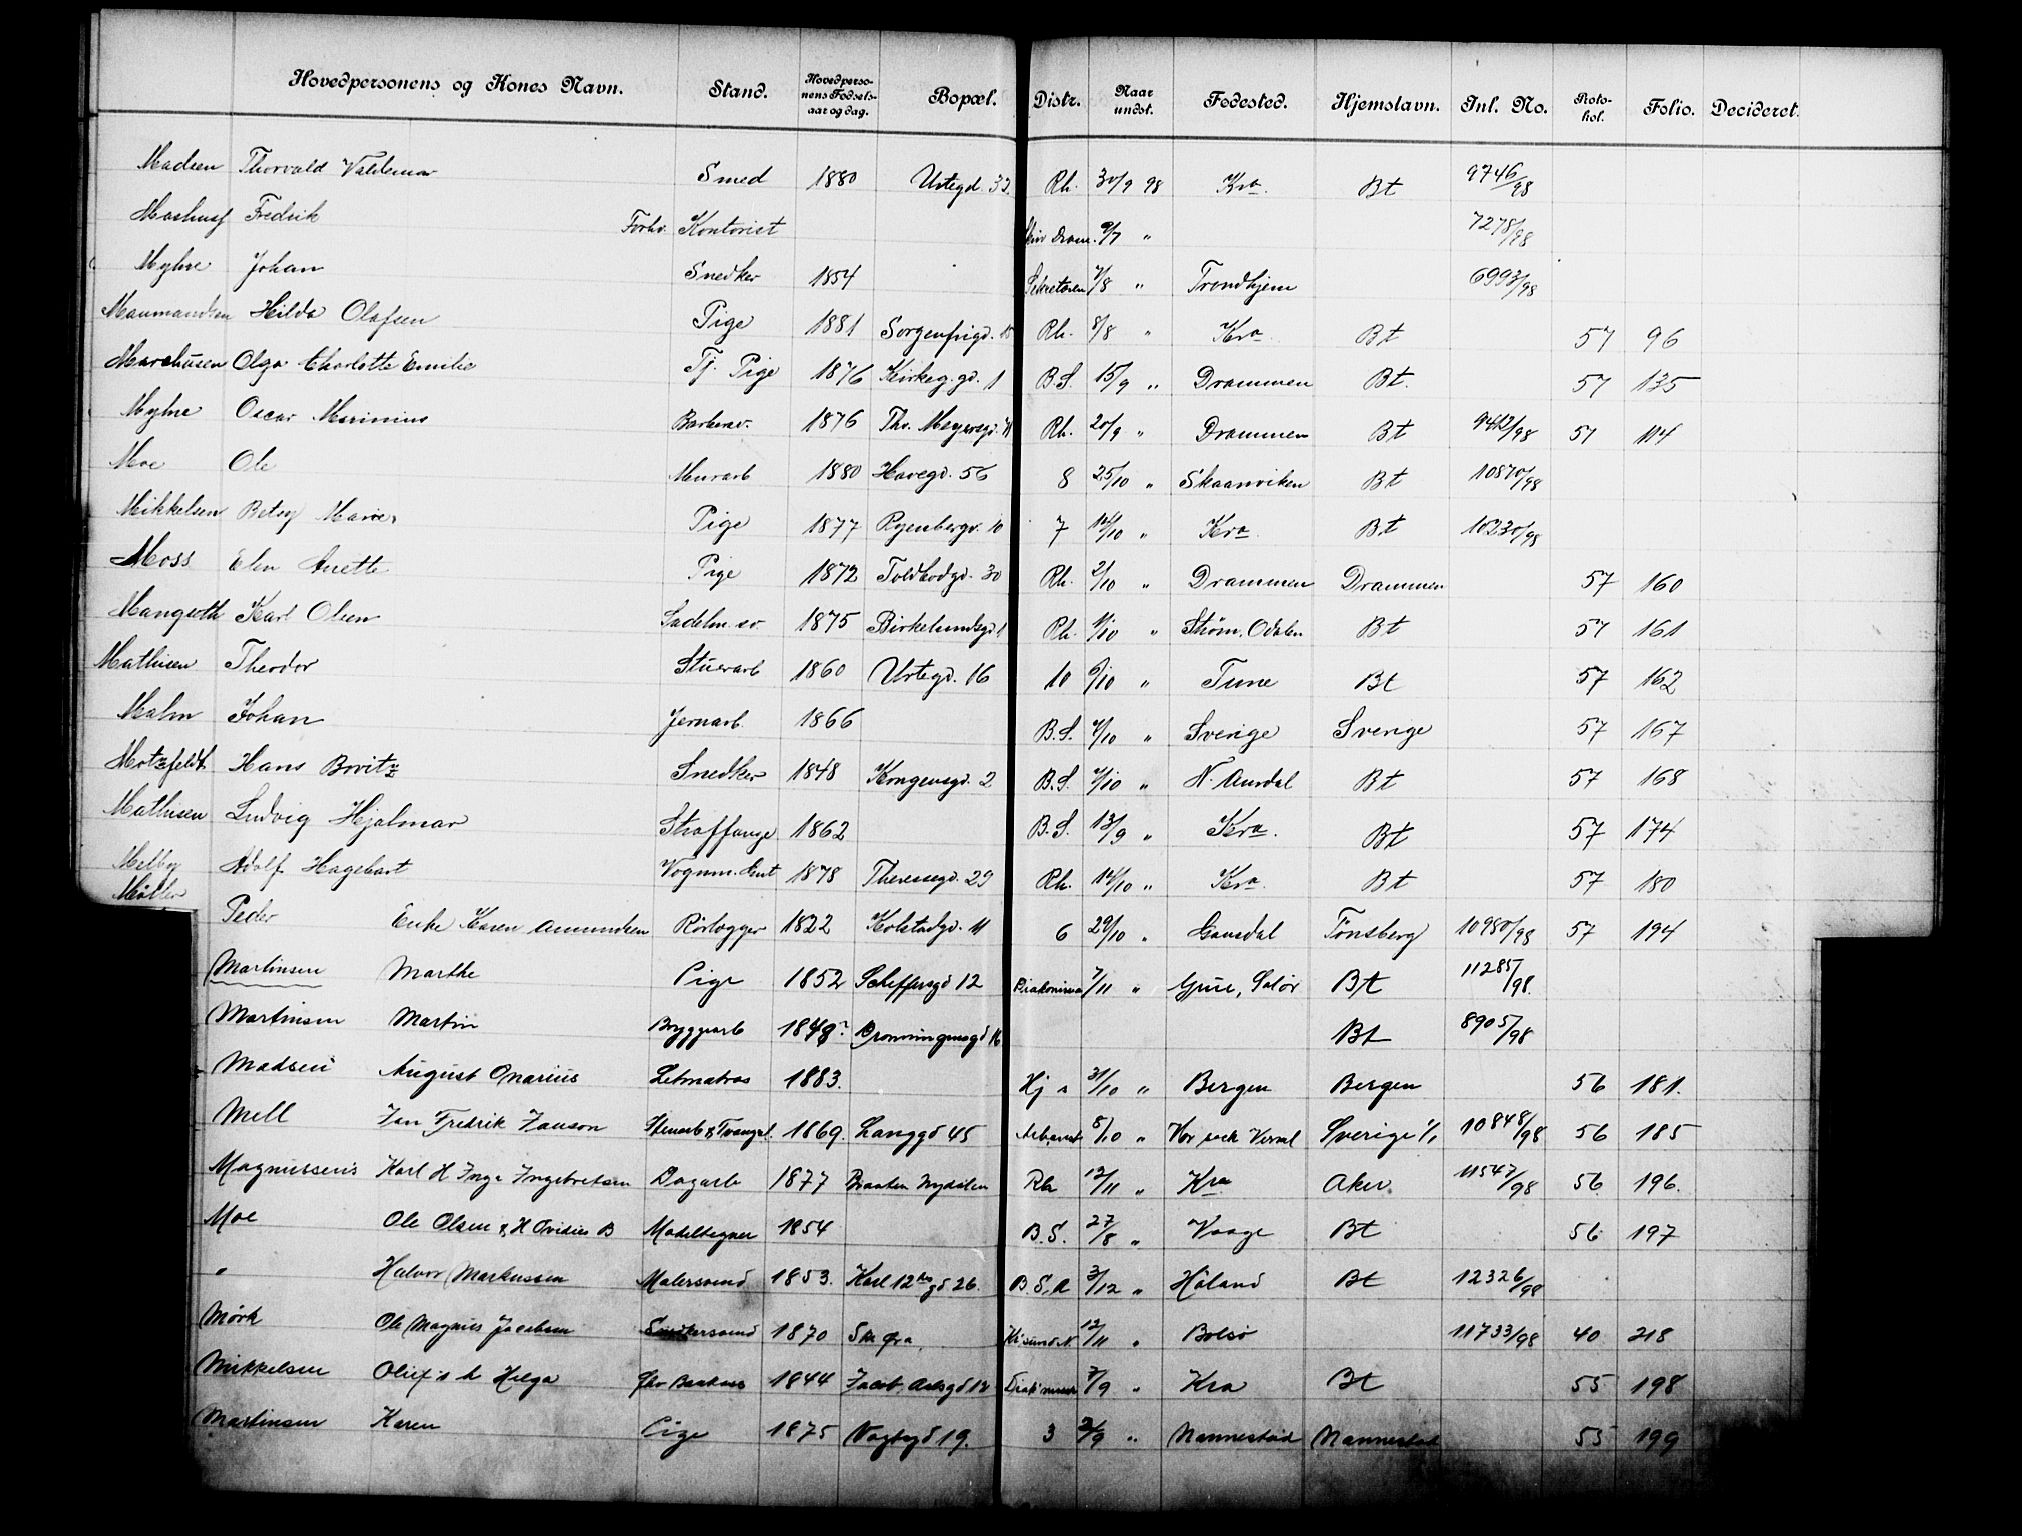 Hovedpersonens og Kones Navn. Stand. Hovedpersonens Fødselsaar og dag. Bopæl. Distr. Naar undst. Fødested. Hjemstavn. Inl. No. Protokol. Folio. Decideret.
Madsen Thorvald Valdemar Smed 1880 Urtegd. 32 Rh. 30/9 98 Kra. Bt 9746/98
Fredrik Forhv. Kontorist 9/7 " 7278/98
Myhre Johan Snedker 1854 Sekretæren 4/8 " Trondhjem 6993/98
Hilda Olafsen Pige 1881 Sorgenfrigd. 15 Rh. 8/8 " Kra Bt 57 96
Marchusen Olga Charlotte Emilie Tj. Pige 1876 Kirkeg.gd. 1 B.S. 15/9 " Drammen Bt. 57 135
Myhre Oscar Marinius Barbersv. 1876 Thv. Meyersgd. Rh. 20/9 " Drammen Bt 9412/98 57 114
Moe Ole Murarb 1880 Havegd. 56 8 25/10 " Skaanviken Bt 10870/98
Mikkelsen Betsy Marie Pige 1877 Ryenbergv. 10 7 14/10 " Kra. Bt 10230/98
Moss Elen Anette Pige 1872 Toldbodgd. 30 Rh. 2/10 " Drammen Drammen 57 160
Mangseth Karl Olsen Sadelm. sv. 1875 Birkelundsgd 1 Rh. 4/10 " Strøm, Odalen Bt 57 161
Mathisen Theodor Stuerarb 1860 Urtegd. 16 10 6/10 " Tune Bt 57 162
Malm Johan Jernarb. 1866 B.S. 4/10 " Sverige Sverige 57 167
Motzfeldt Hans Bovitz Snedker 1848 Kongensgd. 2 B.S. 4/10 " N. Aurdal Bt 57 168
Mathisen Ludvig Hjalmar Straffange 1862 B.S. 13/9 " Kra. Bt 57 174
Melby Adolf Hagebart Vognm. 1878 Theresegd. 29 Rh. 14/10 " Kra. Bt 57 180
Møller Peder Enke Karen Amundsen Rørlægger 1822 Kolstadgd. 11 6 29/10 " Gausdal Tønsberg 10980/98 57 194
Martinsen Marthe Pige 1852 Scheffersgd 12 7/11 " Grue, Solør Bt 11285/98.
Martinsen Martin Bryggearb 1848? Dronningensgd 16 Bt 8905/98
Madsen August Marius Letmatros 1883. Hj 31/10 " Bergen Bergen 56 181.
Mell Jan Fredrik Janson 1869. Langgd 45 8/10 " Sverige 1/1 10848/98 56 185
Magnussen Karl H Inga Ingebretsen Dagarb 1877 Braaten Nydalen Rh 12/11 " Kra Aker 11547/98 56 196.
Moe Ole Olsen & H Ovidies B Modeltegner 1854 B.S. 27/8 " Vaage Bt 56 197
" Halvor Markussen Malersvend 1853. Karl 12tes gd 26. B.S.A 3/12 " Høland Bt 12326/98
Mørk Ole Magnus Jacobsen Snedkersvend 1870 12/11 " Bolsø 11733/98 40 218
Mikkelsen Helga 1844 Jacob Aalsgd 12 7/9 " Kra Bt 55 198
Martinsen Karen Pige 1875 Vogtsgd 19. 3 2/9 " Nannestad Nannestad 55 199